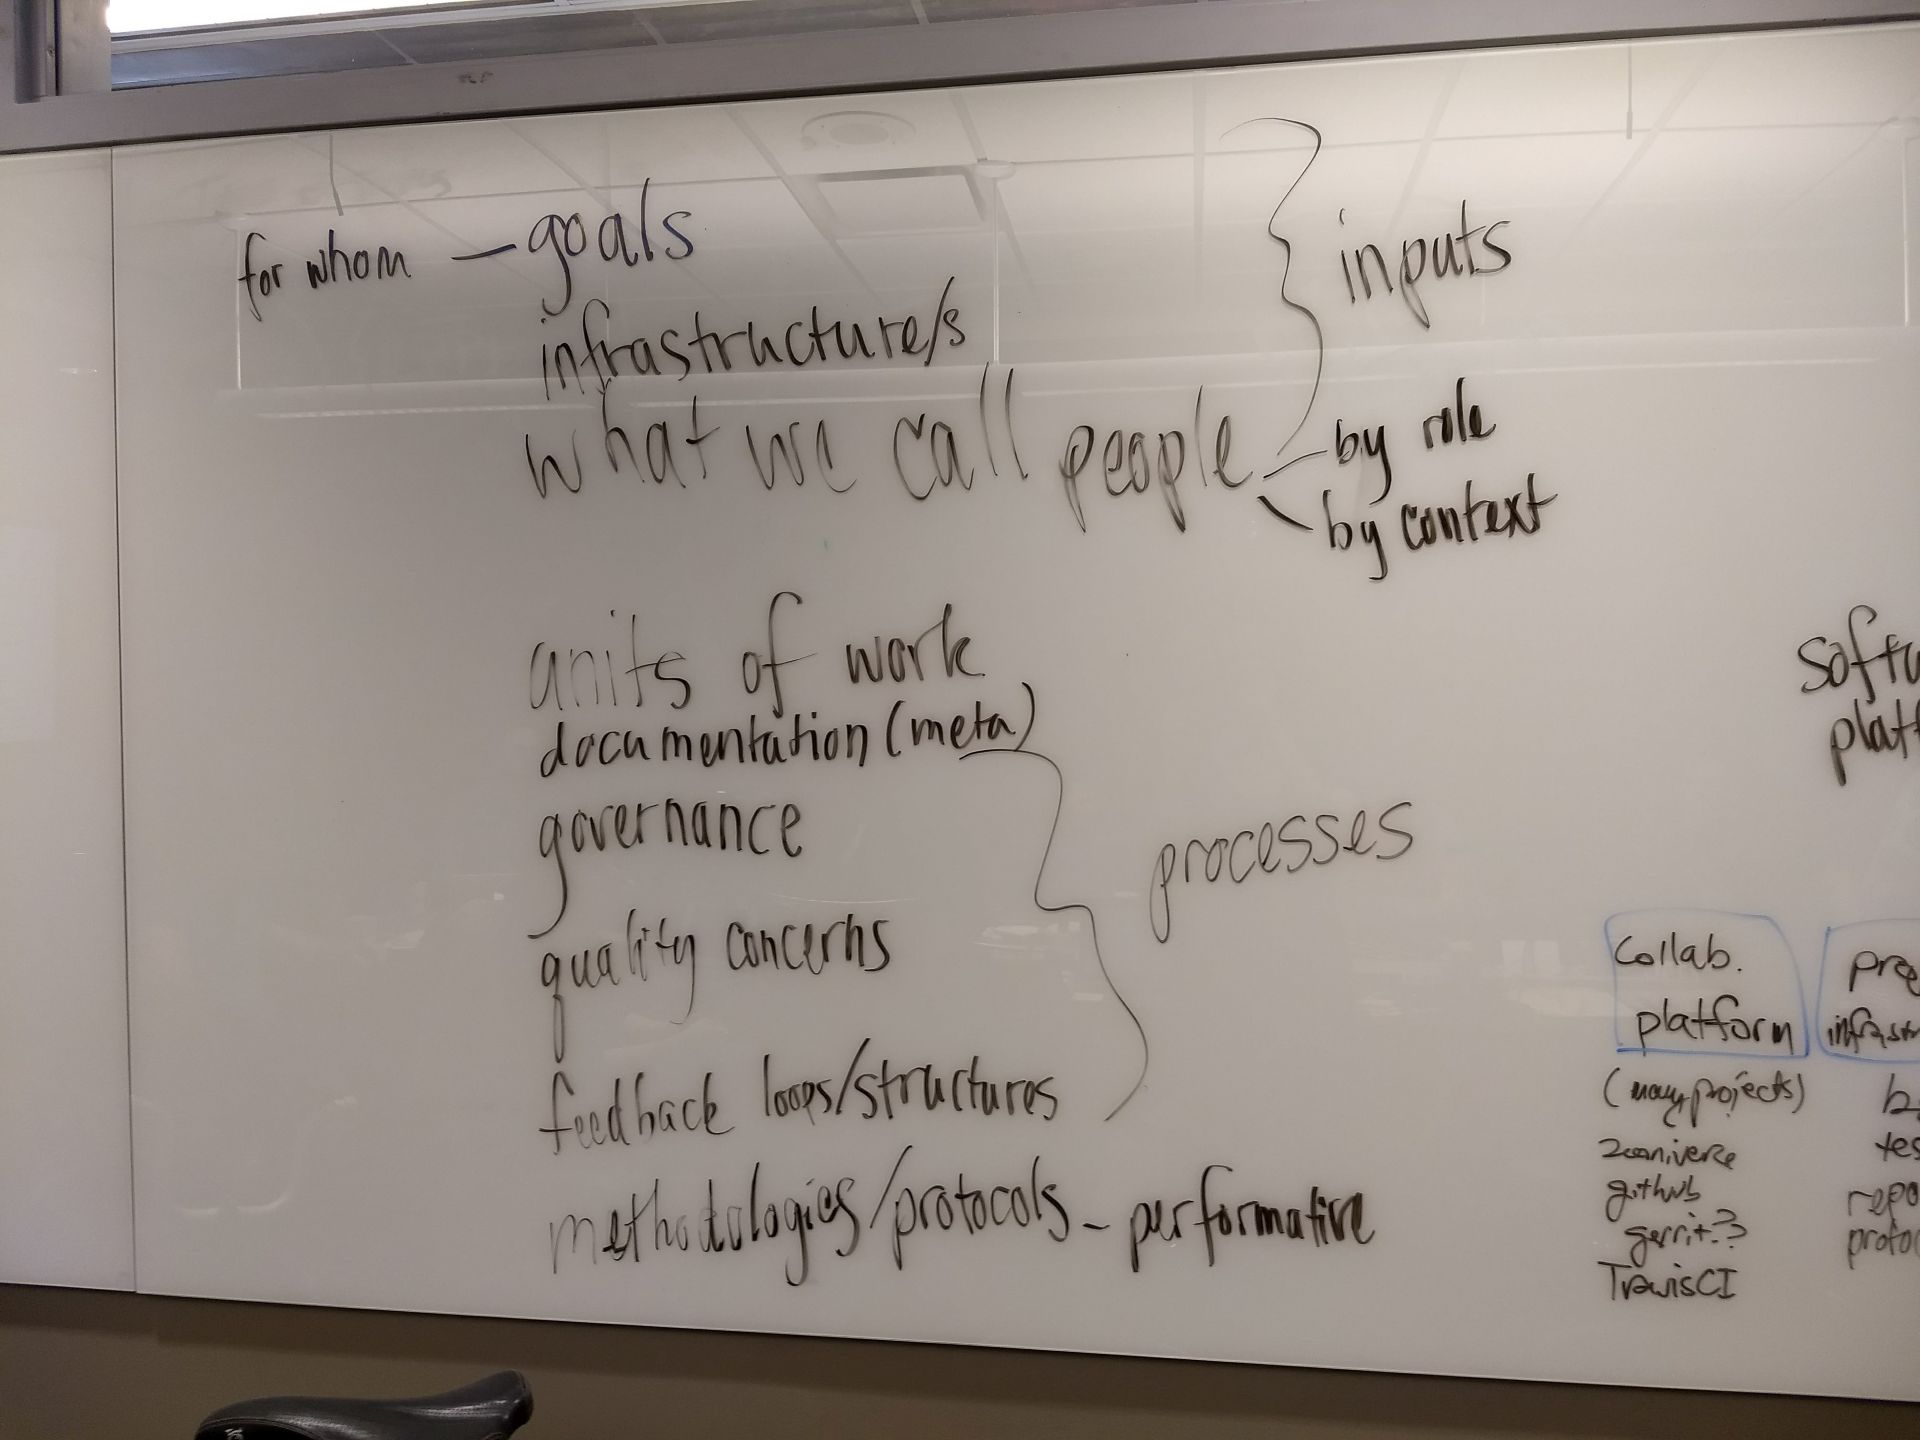 for whom — goals
infrastructure/s
what we call people
inputs
- by role
by context
units of work
documentation (meta)
governance
quality concerns
feedback loops/structures
processes
methodologies/protocols - performative
collab.
platform
(many projects)
zooniverse
github
gerrit??
TravisCI